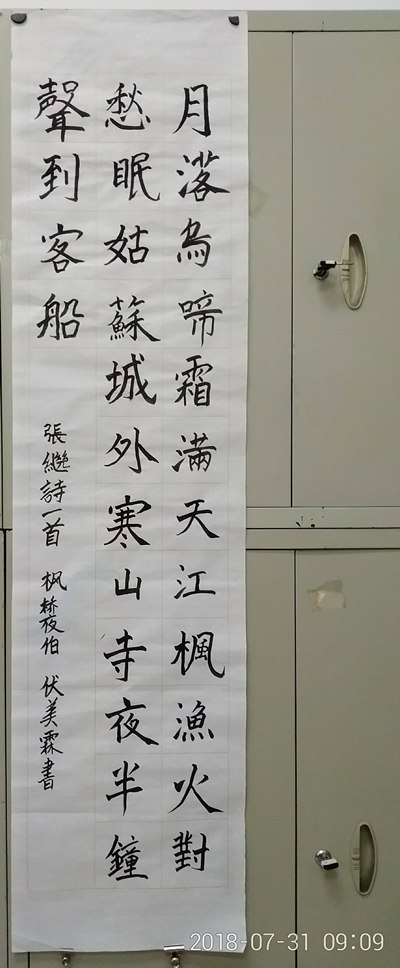 月落烏啼霜滿天江楓漁火對
愁眠姑蘇城外寒山寺夜半鐘
聲到客船
張繼詩一首 枫桥夜伯 伏美霖書
2018-07-31 09:09